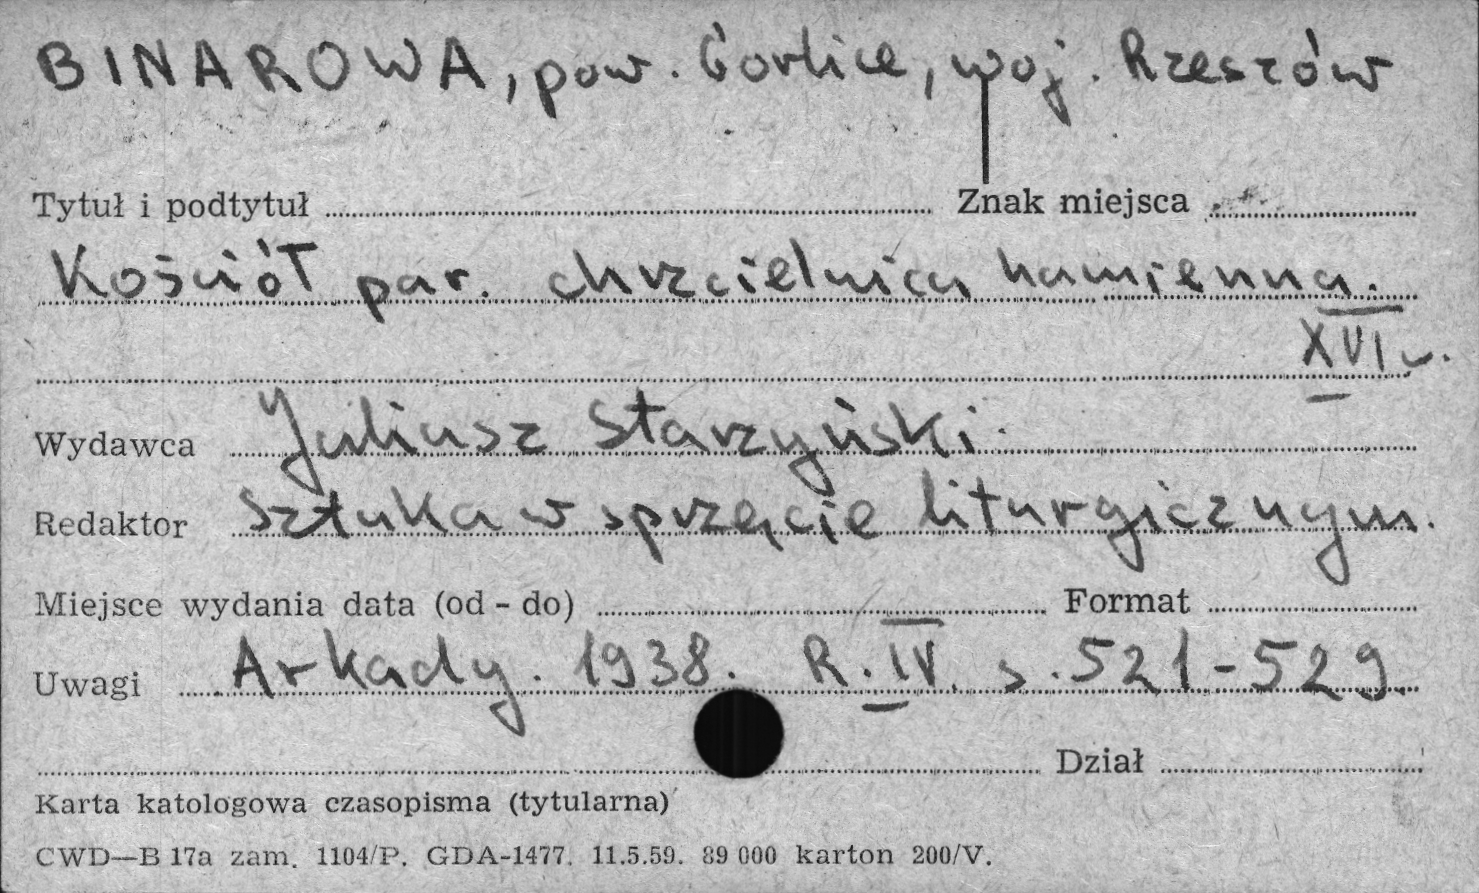 BINAROWA, pow. Gorlice, woj. Rzeszów
Tytuł i podtytuł Znak miejsca
Kościół par. chrzcielnica kamienna.
XVI w.
Wydawca Juliusz Starzyński.
Redaktor Sztuka w sprzęcie liturgicznym.
Miejsce wydania data (od - do) Format
Uwagi Arkady. 1938. R. IV. s. 521-529.
Dział
Karta katologowa czasopisma (tytularna)
CWD—B 17a zam. 1104/P. GDA-1477. 11.5.59. 89 000 karton 200/V.